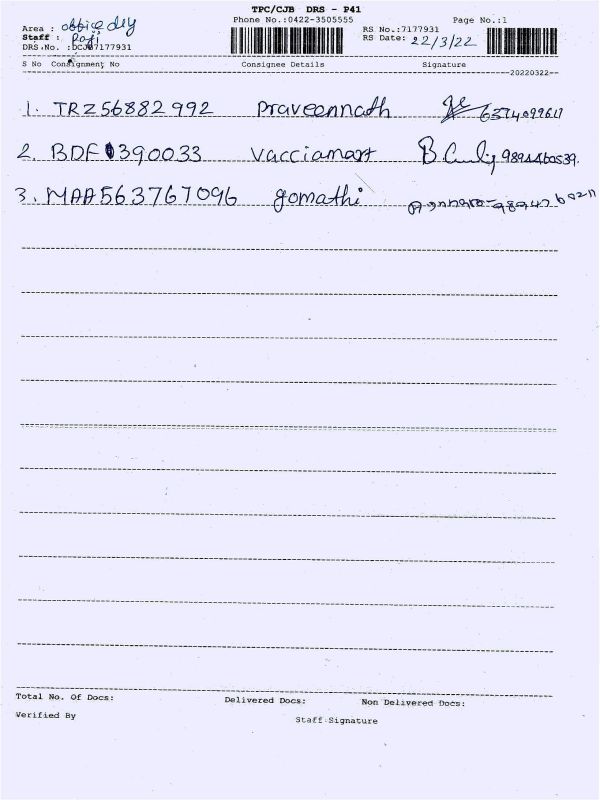 TPC/CJB DRS - P41
Area : office dly Phone No.:0422-3505555 Page No.:1
Staff : Raji RS No.:7177931
DRS.No. :DCJB7177931 RS Date: 22/3/22
S No Consignment No Consignee Details Signature
20220322
1. TRZ56882992 Praveennath
2. BDF 390033 vacciamart
3. MAA563767096 gomathi
Total No. Of Docs: Delivered Docs: Non Delivered Docs:
Verified By Staff Signature